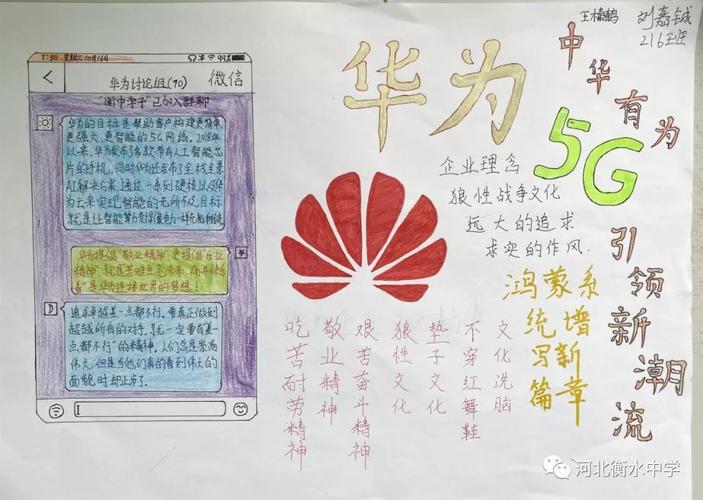 7:30 星期三10月16日 99%
华为讨论组(90) 微信
"衡中学子"已加入群聊
华为的目标是帮助客户构建更简单
更强大,更智能的5G网络。2018年
以来,华为发布了多款带有人工智能芯
片的手机,同时华为还发布了全栈全景
AI解决方案,通过一系列硬核以及华
为云来实现智能的无所不及,目标
就是让智能算力变得像电力一样
华为提倡"敬业精神"更提倡
精神
是华为连接世界的梦想!
追求卓越差一点都不行,要真正做到
超越所有的对手,就一定要有"差一
点都不行"的精神,人们总是崇尚
伟大,但是当他们真的看到伟大的
面貌时却止步了。
华为
企业理念
狼性战争文化
远大的追求
求实的作风.
鸿蒙系
统谱
写新
篇章
吃苦耐劳精神
敬业精神
艰苦奋斗精神
狼性文化
垫子文化
不穿红舞鞋
文化洗脑
刘嘉铖
216班
中华有为
5G
引领新潮流
河北衡水中学